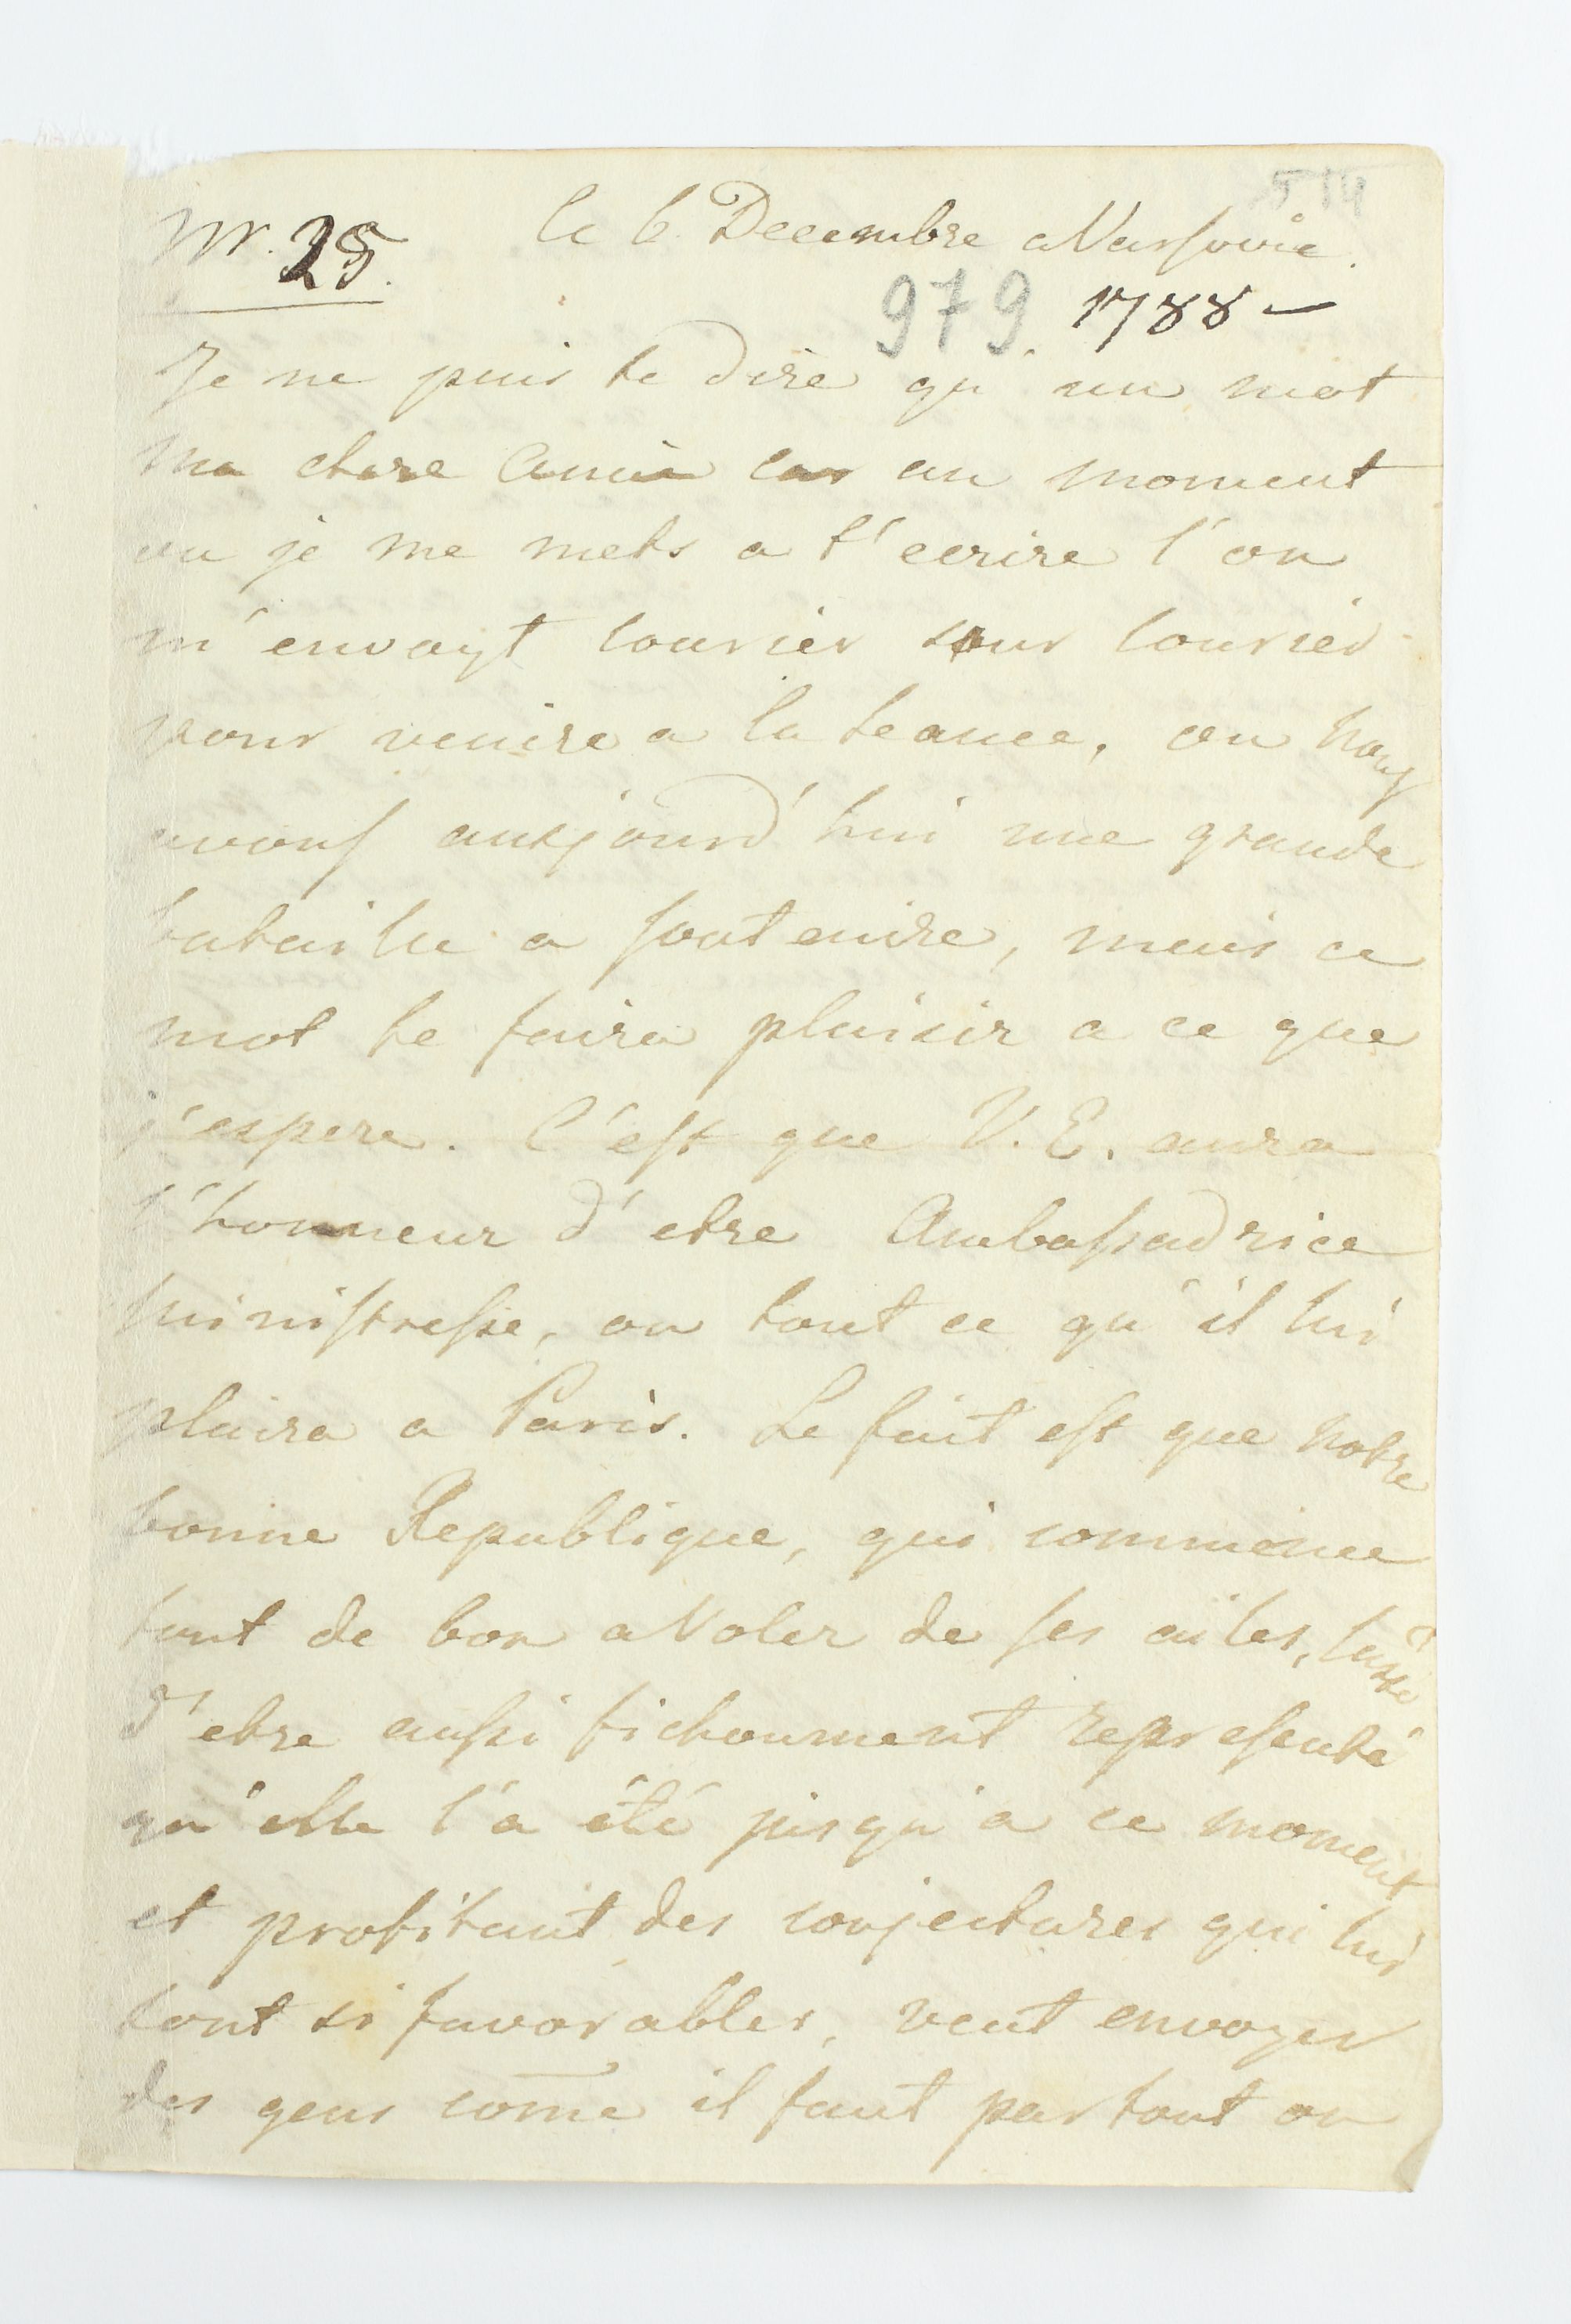 514
Nr. 25. le 6 Decembre a Varsovie.
979. 1788 —
Je ne puis te dire qu'un mot
ma chere Amie car au moment
ou je me mets a t'ecrire l'on
m'envoyt courier sur courier
pour venire a la seance, ou nous
avons aujourd'hui une grande
bataille a soutenire, mais ce
mot te faira plaisir a ce que
j'espere. C'est que V. E. aura
l'honneur d'etre Ambassadrice
ministresse, ou tout ce qu'il lui
plaira a Paris. Le fait est que notre
bonne Republique, qui commence
tout de bon a Voler de ses ailes,
d'etre aussi fichoument representé
qu'elle l'a été jusqu'a ce moment
et profitant des conjectures qui lui
sont si favorables, veut envoyer
des gens come il faut par tout ou